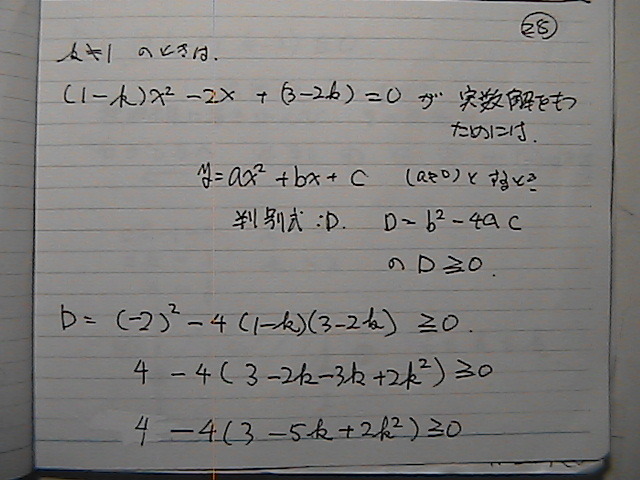 28
k≠1 のときは.
(1-k)x² -2x +(3-2k)=0 が 実数解をもつ
ためには.
y=ax²+bx+c (a≠0)とするとき
判別式:D. D=b²-4ac
の D≧0.
D= (-2)² -4(1-k)(3-2k) ≧0.
4 -4(3-2k-3k+2k²)≧0
4 -4(3-5k+2k²)≧0